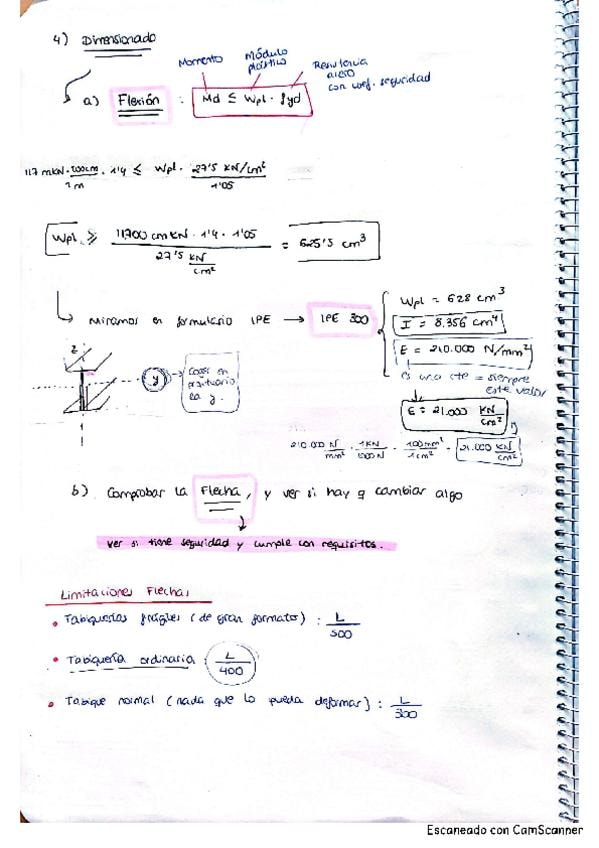 4) Dimensionado
Momento
módulo plástico
Resistencia acero con coef. seguridad
a) Flexión : Md ≤ Wpl · fyd
117 mkN · 100cm/1m · 1'4 ≤ Wpl · 27'5 KN/cm²/1'05
Wpl ≥ 11700 cmKN · 1'4 · 1'05 / 27'5 KN/cm² = 625'5 cm³
Miramos en formulario IPE → IPE 300
Wpl = 628 cm³
I = 8.356 cm⁴
E = 210.000 N/mm²
es una cte = siempre este valor
E = 21.000 KN/cm²
210.000 N/mm² · 1KN/1000N · 100mm²/1cm² = 21.000 KN/cm²
z
y
coger en la y.
b) Comprobar la Flecha, y ver si hay q cambiar algo
ver si tiene seguridad y cumple con requisitos.
Limitaciones Flechas
• Tabiquerías frágiles (de gran formato) : L/500
• Tabiquería ordinaria : L/400
• Tabique normal (nada que lo pueda deformar) : L/300
Escaneado con CamScanner